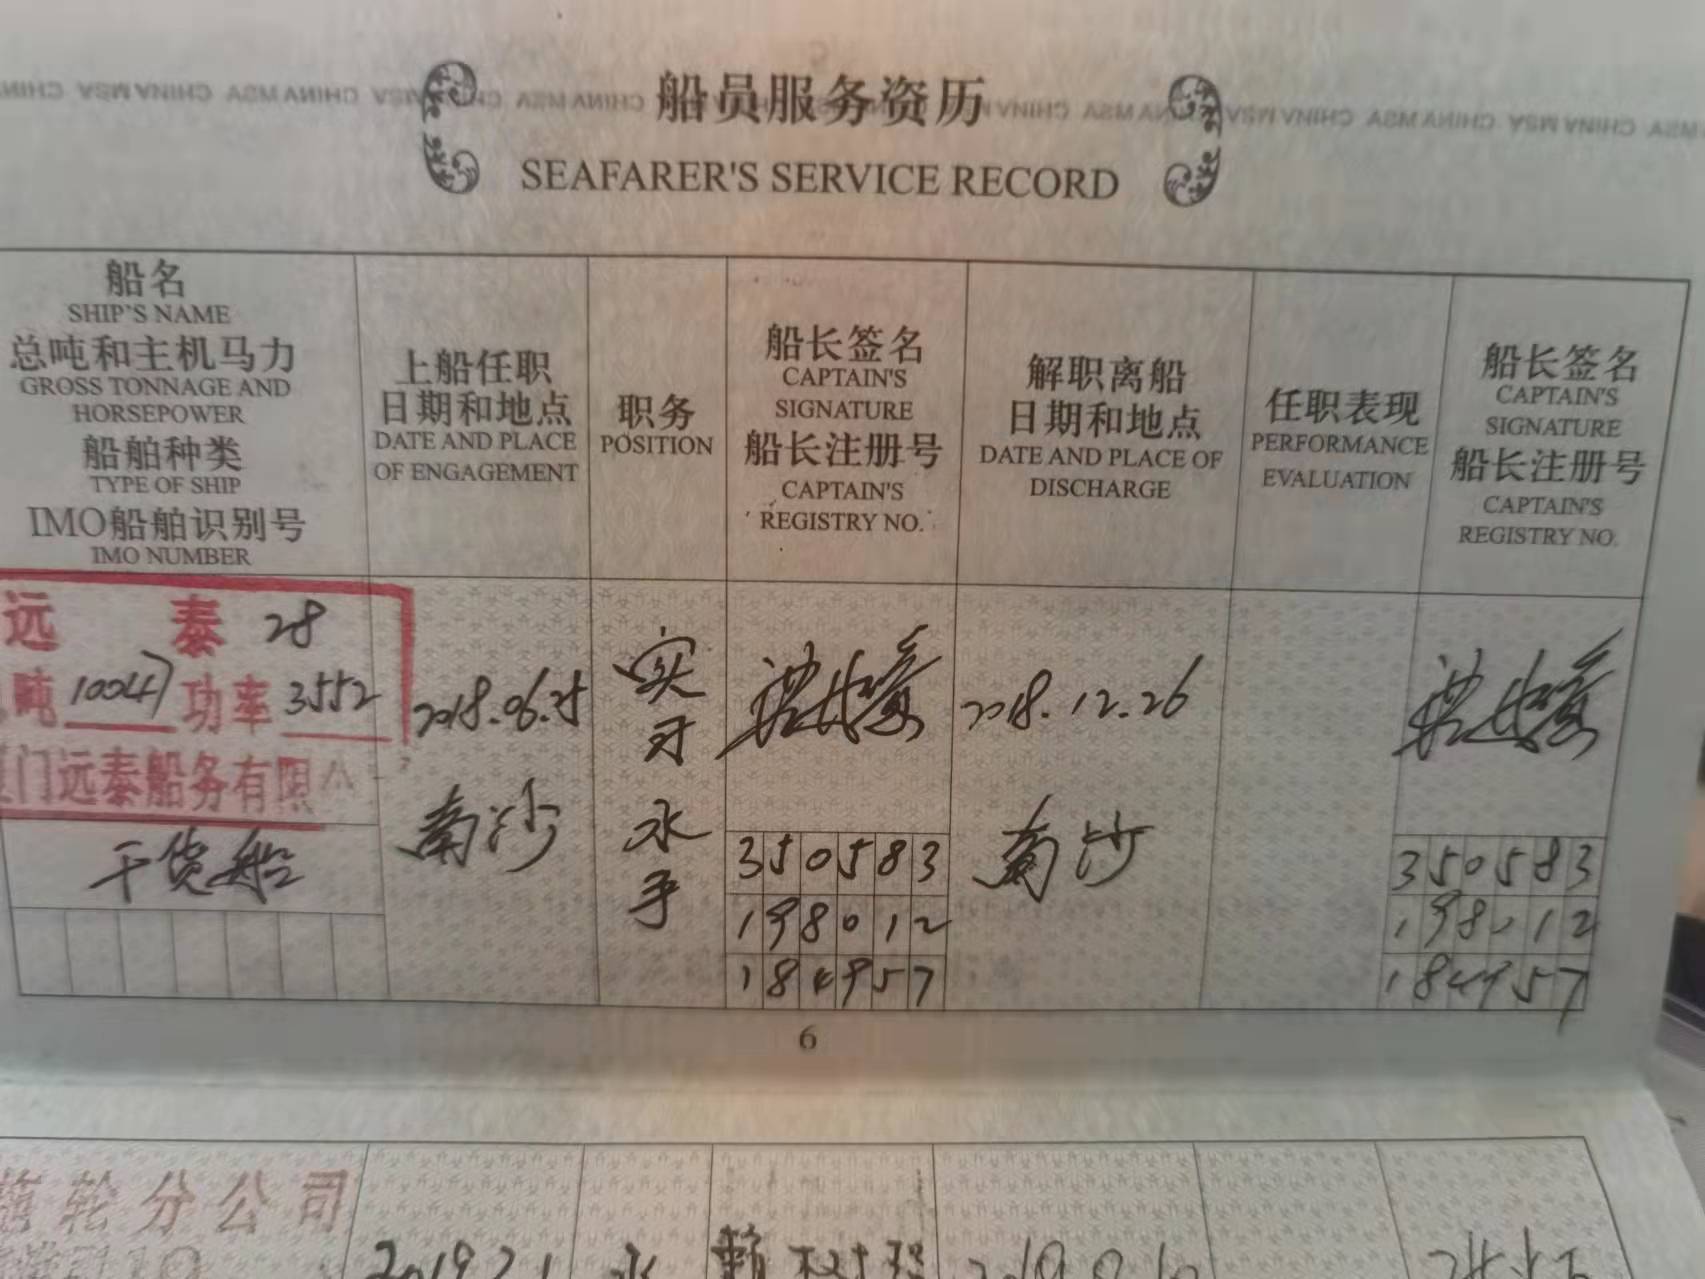 船员服务资历
SEAFARER'S SERVICE RECORD
船名
SHIP'S NAME
总吨和主机马力
GROSS TONNAGE AND
HORSEPOWER
船舶种类
TYPE OF SHIP
IMO船舶识别号
IMO NUMBER
上船任职
日期和地点
DATE AND PLACE
OF ENGAGEMENT
职务
POSITION
船长签名
CAPTAIN'S
SIGNATURE
船长注册号
CAPTAIN'S
REGISTRY NO.
解职离船
日期和地点
DATE AND PLACE OF
DISCHARGE
任职表现
PERFORMANCE
EVALUATION
船长签名
CAPTAIN'S
SIGNATURE
船长注册号
CAPTAIN'S
REGISTRY NO.
远 泰 28
吨 10047 功率 3552
门远泰船务有限
干货船
2018.06.25
南沙
实
习
水
手
350583
198012
184957
2018.12.26
南沙
350583
198012
184957
6
拖轮分公司
水